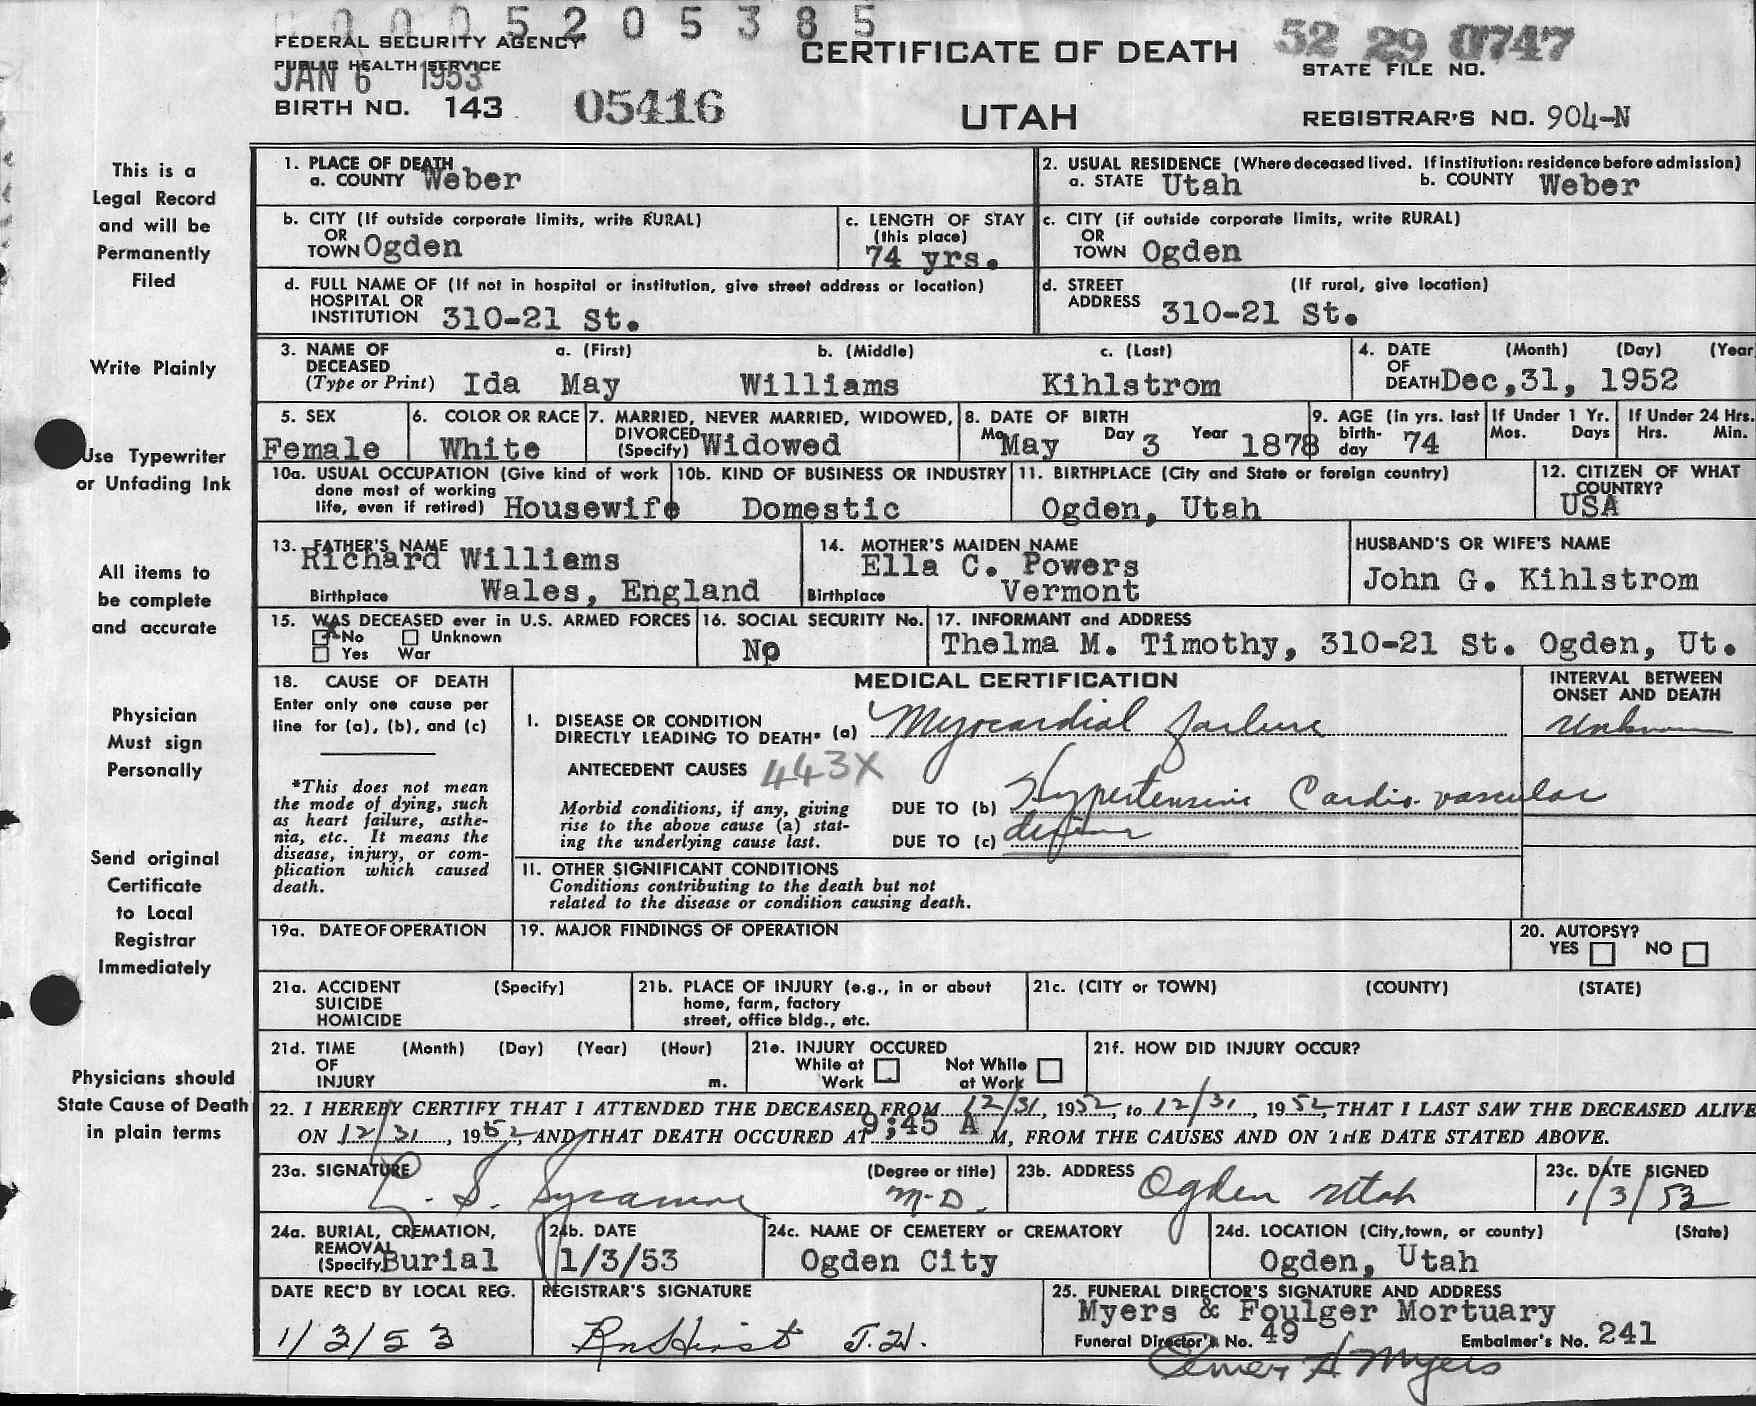 0005205385
FEDERAL SECURITY AGENCY
PUBLIC HEALTH SERVICE
JAN 6 1953
BIRTH NO. 143 05416
CERTIFICATE OF DEATH
UTAH
52 29 0747
STATE FILE NO.
REGISTRAR'S NO. 904-N
This is a
Legal Record
and will be
Permanently
Filed
Write Plainly
Use Typewriter
or Unfading Ink
All items to
be complete
and accurate
Physician
Must sign
Personally
Send original
Certificate
to Local
Registrar
Immediately
Physicians should
State Cause of Death
in plain terms
1. PLACE OF DEATH
a. COUNTY Weber
2. USUAL RESIDENCE (Where deceased lived. If institution: residence before admission)
a. STATE Utah b. COUNTY Weber
b. CITY (If outside corporate limits, write RURAL)
OR
TOWN Ogden
c. LENGTH OF STAY
(this place)
74 yrs.
c. CITY (if outside corporate limits, write RURAL)
OR
TOWN Ogden
d. FULL NAME OF (If not in hospital or institution, give street address or location)
HOSPITAL OR
INSTITUTION 310-21 St.
d. STREET (If rural, give location)
ADDRESS 310-21 St.
3. NAME OF a. (First) b. (Middle) c. (Last)
DECEASED
(Type or Print) Ida May Williams Kihlstrom
4. DATE (Month) (Day) (Year
OF
DEATH Dec,31, 1952
5. SEX
Female
6. COLOR OR RACE
White
7. MARRIED, NEVER MARRIED, WIDOWED,
DIVORCED
(Specify) Widowed
8. DATE OF BIRTH
Mo May Day 3 Year 1878
9. AGE (in yrs. last
birth-
day 74
If Under 1 Yr.
Mos. Days
If Under 24 Hrs.
Hrs. Min.
10a. USUAL OCCUPATION (Give kind of work
done most of working
life, even if retired) Housewife
10b. KIND OF BUSINESS OR INDUSTRY
Domestic
11. BIRTHPLACE (City and State or foreign country)
Ogden, Utah
12. CITIZEN OF WHAT
COUNTRY?
USA
13. FATHER'S NAME
Richard Williams
Birthplace Wales, England
14. MOTHER'S MAIDEN NAME
Ella C. Powers
Birthplace Vermont
HUSBAND'S OR WIFE'S NAME
John G. Kihlstrom
15. WAS DECEASED ever in U.S. ARMED FORCES
x No Unknown
Yes War
16. SOCIAL SECURITY No.
No
17. INFORMANT and ADDRESS
Thelma M. Timothy, 310-21 St. Ogden, Ut.
18. CAUSE OF DEATH
Enter only one cause per
line for (a), (b), and (c)
*This does not mean
the mode of dying, such
as heart failure, asthe-
nia, etc. It means the
disease, injury, or com-
plication which caused
death.
MEDICAL CERTIFICATION
INTERVAL BETWEEN
ONSET AND DEATH
I. DISEASE OR CONDITION
DIRECTLY LEADING TO DEATH* (a) Myocardial failure Unknown
ANTECEDENT CAUSES 443X
Morbid conditions, if any, giving
rise to the above cause (a) stat-
ing the underlying cause last.
DUE TO (b) Hypertensive Cardio vascular
DUE TO (c)
II. OTHER SIGNIFICANT CONDITIONS
Conditions contributing to the death but not
related to the disease or condition causing death.
19a. DATE OF OPERATION
19. MAJOR FINDINGS OF OPERATION
20. AUTOPSY?
YES NO
21a. ACCIDENT (Specify)
SUICIDE
HOMICIDE
21b. PLACE OF INJURY (e.g., in or about
home, farm, factory
street, office bldg., etc.
21c. (CITY or TOWN) (COUNTY) (STATE)
21d. TIME (Month) (Day) (Year) (Hour)
OF
INJURY m.
21e. INJURY OCCURED
While at Work Not While at Work
21f. HOW DID INJURY OCCUR?
22. I HEREBY CERTIFY THAT I ATTENDED THE DECEASED FROM 12/31, 1952, to 12/31, 1952, THAT I LAST SAW THE DECEASED ALIVE
ON 12/31, 1952, AND THAT DEATH OCCURED AT 9;45 A M, FROM THE CAUSES AND ON THE DATE STATED ABOVE.
23a. SIGNATURE (Degree or title)
M.D.
23b. ADDRESS Ogden Utah
23c. DATE SIGNED
1/3/53
24a. BURIAL, CREMATION,
REMOVAL
(Specify Burial
24b. DATE
1/3/53
24c. NAME OF CEMETERY or CREMATORY
Ogden City
24d. LOCATION (City, town, or county) (State)
Ogden, Utah
DATE REC'D BY LOCAL REG.
1/3/53
REGISTRAR'S SIGNATURE
25. FUNERAL DIRECTOR'S SIGNATURE AND ADDRESS
Myers & Foulger Mortuary
Funeral Director's No. 49 Embalmer's No. 241
Myers